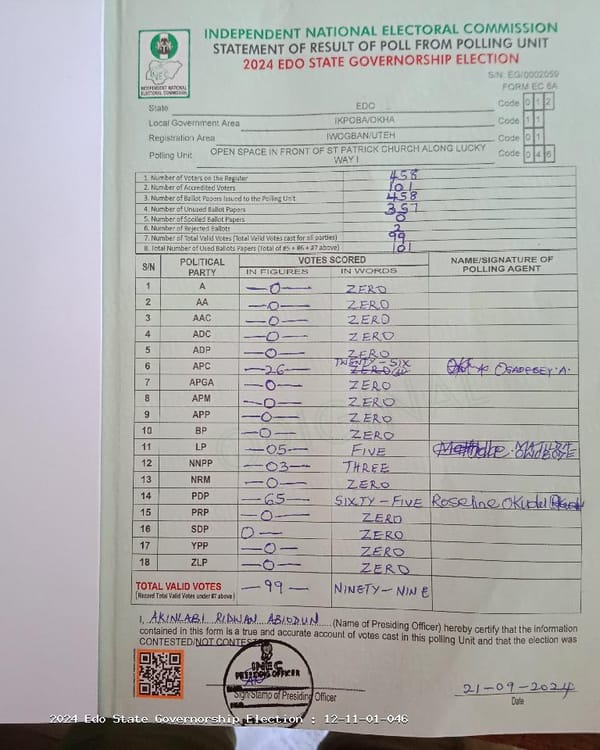 INDEPENDENT NATIONAL ELECTORAL COMMISSION
STATEMENT OF RESULT OF POLL FROM POLLING UNIT
2024 EDO STATE GOVERNORSHIP ELECTION
INEC
INDEPENDENT NATIONAL
ELECTORAL COMMISSION
S/N: EG/0002059
FORM EC 8A
State EDO Code 0 1 2
Local Government Area IKPOBA/OKHA Code 1 1
Registration Area IWOGBAN/UTEH Code 0 1
Polling Unit OPEN SPACE IN FRONT OF ST PATRICK CHURCH ALONG LUCKY WAY I Code 0 4 6
1. Number of Voters on the Register 458
2. Number of Accredited Voters 101
3. Number of Ballot Papers Issued to the Polling Unit 458
4. Number of Unused Ballot Papers 357
5. Number of Spoiled Ballot Papers 0
6. Number of Rejected Ballots 2
7. Number of Total Valid Votes (Total Valid Votes cast for all parties) 99
8. Total Number of Used Ballots Papers (Total of #5 + #6 + #7 above) 101
S/N POLITICAL PARTY VOTES SCORED NAME/SIGNATURE OF POLLING AGENT
IN FIGURES IN WORDS
1 A —0— ZERO
2 AA —0— ZERO
3 AAC —0— ZERO
4 ADC —0— ZERO
5 ADP —0— ZERO
6 APC —26— TWENTY-SIX OSADEBEY.A.
7 APGA —0— ZERO
8 APM —0— ZERO
9 APP —0— ZERO
10 BP —0— ZERO
11 LP —05— FIVE
12 NNPP —03— THREE
13 NRM —0— ZERO
14 PDP —65— SIXTY-FIVE Roseline
15 PRP —0— ZERO
16 SDP 0— ZERO
17 YPP —0— ZERO
18 ZLP —0— ZERO
TOTAL VALID VOTES —99— NINETY-NINE
(Record Total Valid Votes under #7 above)
I, AKINLABI RIDWAN ABIODUN (Name of Presiding Officer) hereby certify that the information
contained in this form is a true and accurate account of votes cast in this polling Unit and that the election was
CONTESTED/NOT CONTESTED
INEC
PRESIDING OFFICER
Sign/Stamp of Presiding Officer
21-09-2024
Date
2024 Edo State Governorship Election : 12-11-01-046